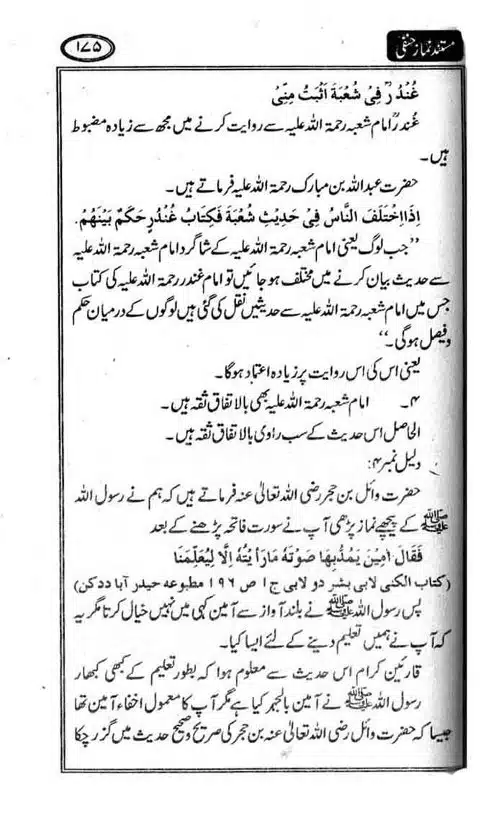 مستند نماز حنفی
۱۷۵
غُنْدُرٌ فِیْ شُعْبَۃَ اَثْبَتُ مِنِّیْ
غُندرؒ امام شعبہ رحمۃ اللہ علیہ سے روایت کرنے میں مجھ سے زیادہ مضبوط
ہیں۔
حضرت عبداللہ بن مبارک رحمۃ اللہ علیہ فرماتے ہیں۔
اِذَا اخْتَلَفَ النَّاسُ فِیْ حَدِیْثِ شُعْبَۃَ فَکِتَابُ غُنْدُرٍ حَکَمٌ بَیْنَھُمْ۔
’’جب لوگ یعنی امام شعبہ رحمۃ اللہ علیہ کے شاگرد امام شعبہ رحمۃ اللہ علیہ
سے حدیث بیان کرنے میں مختلف ہو جائیں تو امام غندر رحمۃ اللہ علیہ کی کتاب
جس میں امام شعبہ رحمۃ اللہ علیہ سے حدیثیں نقل کی گئی ہیں لوگوں کے درمیان حکم
و فیصل ہوگی۔‘‘
یعنی اس کی اس روایت پر زیادہ اعتماد ہوگا۔
۴۔ امام شعبہ رحمۃ اللہ علیہ بھی بالاتفاق ثقہ ہیں۔
الحاصل اس حدیث کے سب راوی بالاتفاق ثقہ ہیں۔
دلیل نمبر ۴:
حضرت وائل بن حجر رضی اللہ تعالیٰ عنہ فرماتے ہیں کہ ہم نے رسول اللہ
ﷺ کے پیچھے نماز پڑھی آپ نے سورت فاتحہ پڑھنے کے بعد
فَقَالَ اٰمِیْنَ یَمُدُّبِھَا صَوْتَہٗ مَارَاَیْتُہٗ اِلَّا لِیُعَلِّمَنَا
(کتاب الکنی لابی بشر دولابی ج ۱ ص ۱۹۶ مطبوعہ حیدر آباد دکن)
پس رسول اللہ ﷺ نے بلند آواز سے آمین کہی میں نہیں خیال کرتا مگر یہ
کہ آپ نے ہمیں تعلیم دینے کے لئے ایسا کیا۔
قارئین کرام اس حدیث سے معلوم ہوا کہ بطور تعلیم کے کبھی کبھار
رسول اللہ ﷺ نے آمین بالجہر کیا ہے مگر آپ کا معمول اخفاء آمین تھا
جیسا کہ حضرت وائل رضی اللہ تعالیٰ عنہ بن حجر کی صریح و صحیح حدیث میں گزر چکا